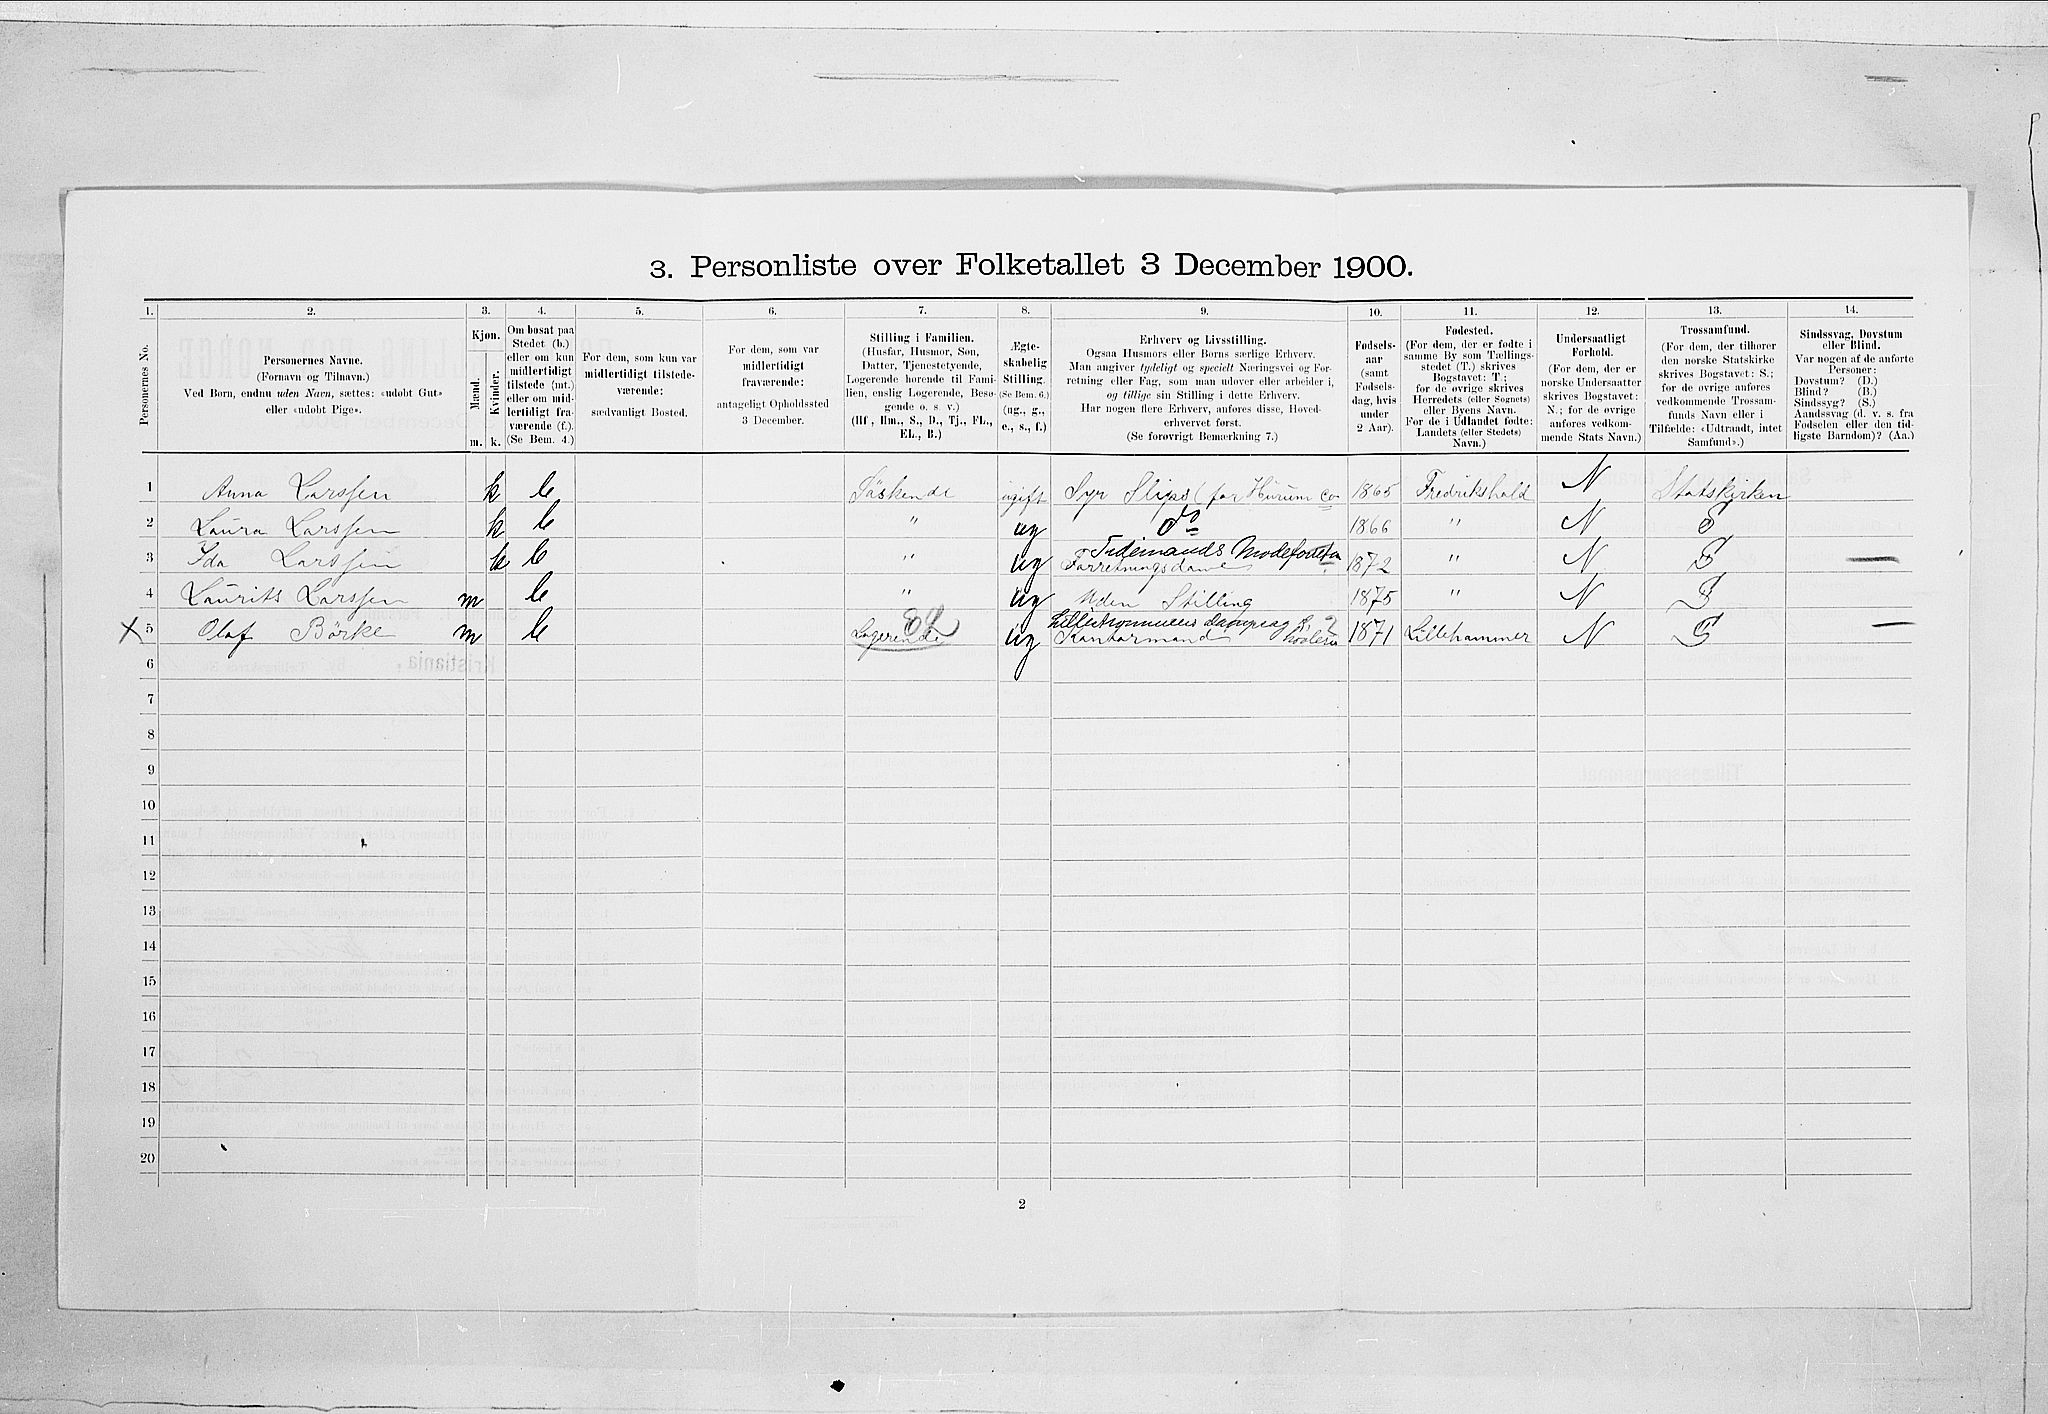 3. Personliste over Folketallet 3 December 1900.
1. 2. 3. 4. 5. 6. 7. 8. 9. 10. 11. 12. 13. 14.
Personernes No.
Personernes Navne.
(Fornavn og Tilnavn.)
Ved Børn, endnu uden Navn, sættes: «udøbt Gut»
eller «udøbt Pige».
Kjøn.
Mænd.
Kvinder.
m. k.
Om bosat paa
Stedet (b.)
eller om kun
midlertidigt
tilstede (mt.)
eller om mid-
lertidigt fra-
værende (f.).
(Se Bem. 4.)
For dem, som kun var
midlertidigt tilstede-
værende:
sædvanligt Bosted.
For dem, som var
midlertidigt
fraværende:
antageligt Opholdssted
3 December.
Stilling i Familien.
(Husfar, Husmor, Søn,
Datter, Tjenestetyende,
Logerende hørende til Fami-
lien, enslig Logerende, Besø-
gende o. s. v.)
(Hf., Hm., S., D., Tj., FL.,
EL., B.)
Ægte-
skabelig
Stilling.
(Se Bem. 6.)
(ug., g.,
e., s., f.)
Erhverv og Livsstilling.
Ogsaa Husmors eller Børns særlige Erhverv.
Man angiver tydeligt og specielt Næringsvei og For-
retning eller Fag, som man udøver eller arbeider i,
og tillige sin Stilling i dette Erhverv.
Har nogen flere Erhverv, anføres disse, Hoved-
erhvervet først.
(Se forøvrigt Bemærkning 7.)
Fødsels-
aar
(samt
Fødsels-
dag, hvis
under
2 Aar).
Fødested.
(For dem, der er fødte i
samme By som Tællings-
stedet (T.) skrives
Bogstavet: T.;
for de øvrige skrives
Herredets (eller Sognets)
eller Byens Navn.
For de i Udlandet fødte:
Landets (eller Stedets)
Navn.)
Undersaatligt
Forhold.
(For dem, der er
norske Undersaatter
skrives Bogstavet:
N.; for de øvrige
anføres vedkom-
mende Stats Navn.)
Trossamfund.
(For dem, der tilhører
den norske Statskirke
skrives Bogstavet: S.;
for de øvrige anføres
vedkommende Trossam-
funds Navn eller i
Tilfælde: «Udtraadt, intet
Samfund».)
Sindssvag, Døvstum
eller Blind.
Var nogen af de anførte
Personer:
Døvstum? (D.)
Blind? (B.)
Sindssyg? (S.)
Aandssvag (d. v. s. fra
Fødselen eller den tid-
ligste Barndom)? (Aa.)
1 Anna Larssen k b Søskende ugift Syr Slips (for Hurum Co 1865 Fredrikshald N Statskirken
2 Laura Larssen k b " ug do 1866 " N S
Tidemands Modeforretn
3 Ida Larssen k b " ug Forretningsdame 1872 " N S
4 Laurits Larssen m b " ug Uden Stilling 1875 " N S
EL Lillestrømmens Dampsag &
X 5 Olaf Børke m b Logerende ug Kontormand 1871 Lillehammer N S
6
7
8
9
10
11
12
13
14
15
16
17
18
19
20
2